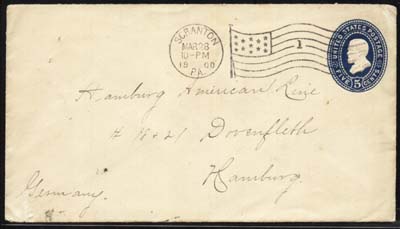 SCRANTON
MAR 28
10-PM
1900
PA.
1
UNITED STATES POSTAGE
FIVE 5 CENTS
Hamburg American Line
18 & 21 Dovenfleth
Hamburg.
Germany.